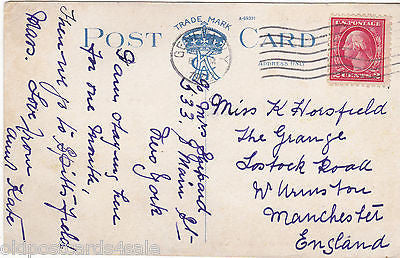 TRADE MARK
A-65331
POST CARD
ADDRESS ONLY
U.S. POSTAGE
2 CENTS 2
GE
C/o Mrs
533, Main St-
New York
I am staying here
for one month
Then we go to
Mass. Love from
Aunt Kate
Miss K Horsfield
The Grange
Lostock Road
W Urmston
Manchester
England
oldpostcards4sale